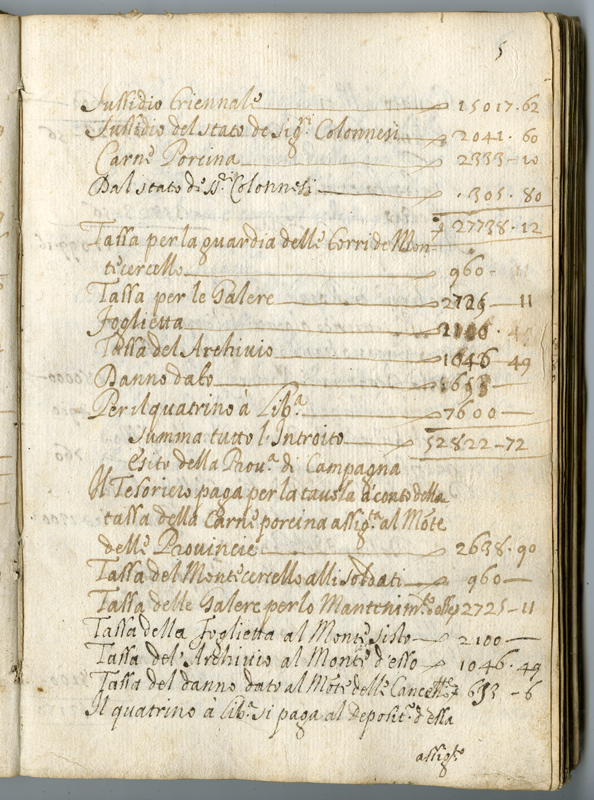 5
Sussidio Triennale 15017.62
Sussidio del stato de Sig.ri Colonnesi 2041.60
Carne Porcina 2333-10
Dal stato de SS.ri Colonnesi .305.80
27738.12
Tassa per la guardia delle Torri de Mon-
tecercello 960-
Tassa per le Galere 2725-11
Foglietta
Tassa del Archivio 1046-49
Danno dato
Per il quatrino à Lib.a 7600-
Summa tutto l'Introito 52822-72
Esito della Prov.a di Campagna
Il Tesoriero paga per la tavola à conto della
tassa della Carne porcina assig.ta al Mote
delle Provincie 2638.90
Tassa del Montecercello alli soldati 960-
Tassa delle Galere per lo Mantenim.to 2725-11
Tassa della Foglietta al Monte Sisto 2100-
Tassa del Archivio al Monte d'esso 1046.49
Tassa del danno dato al Mote delle 633-6
Il quatrino à lib.a si paga al Deposit.o d'essa
assig.to